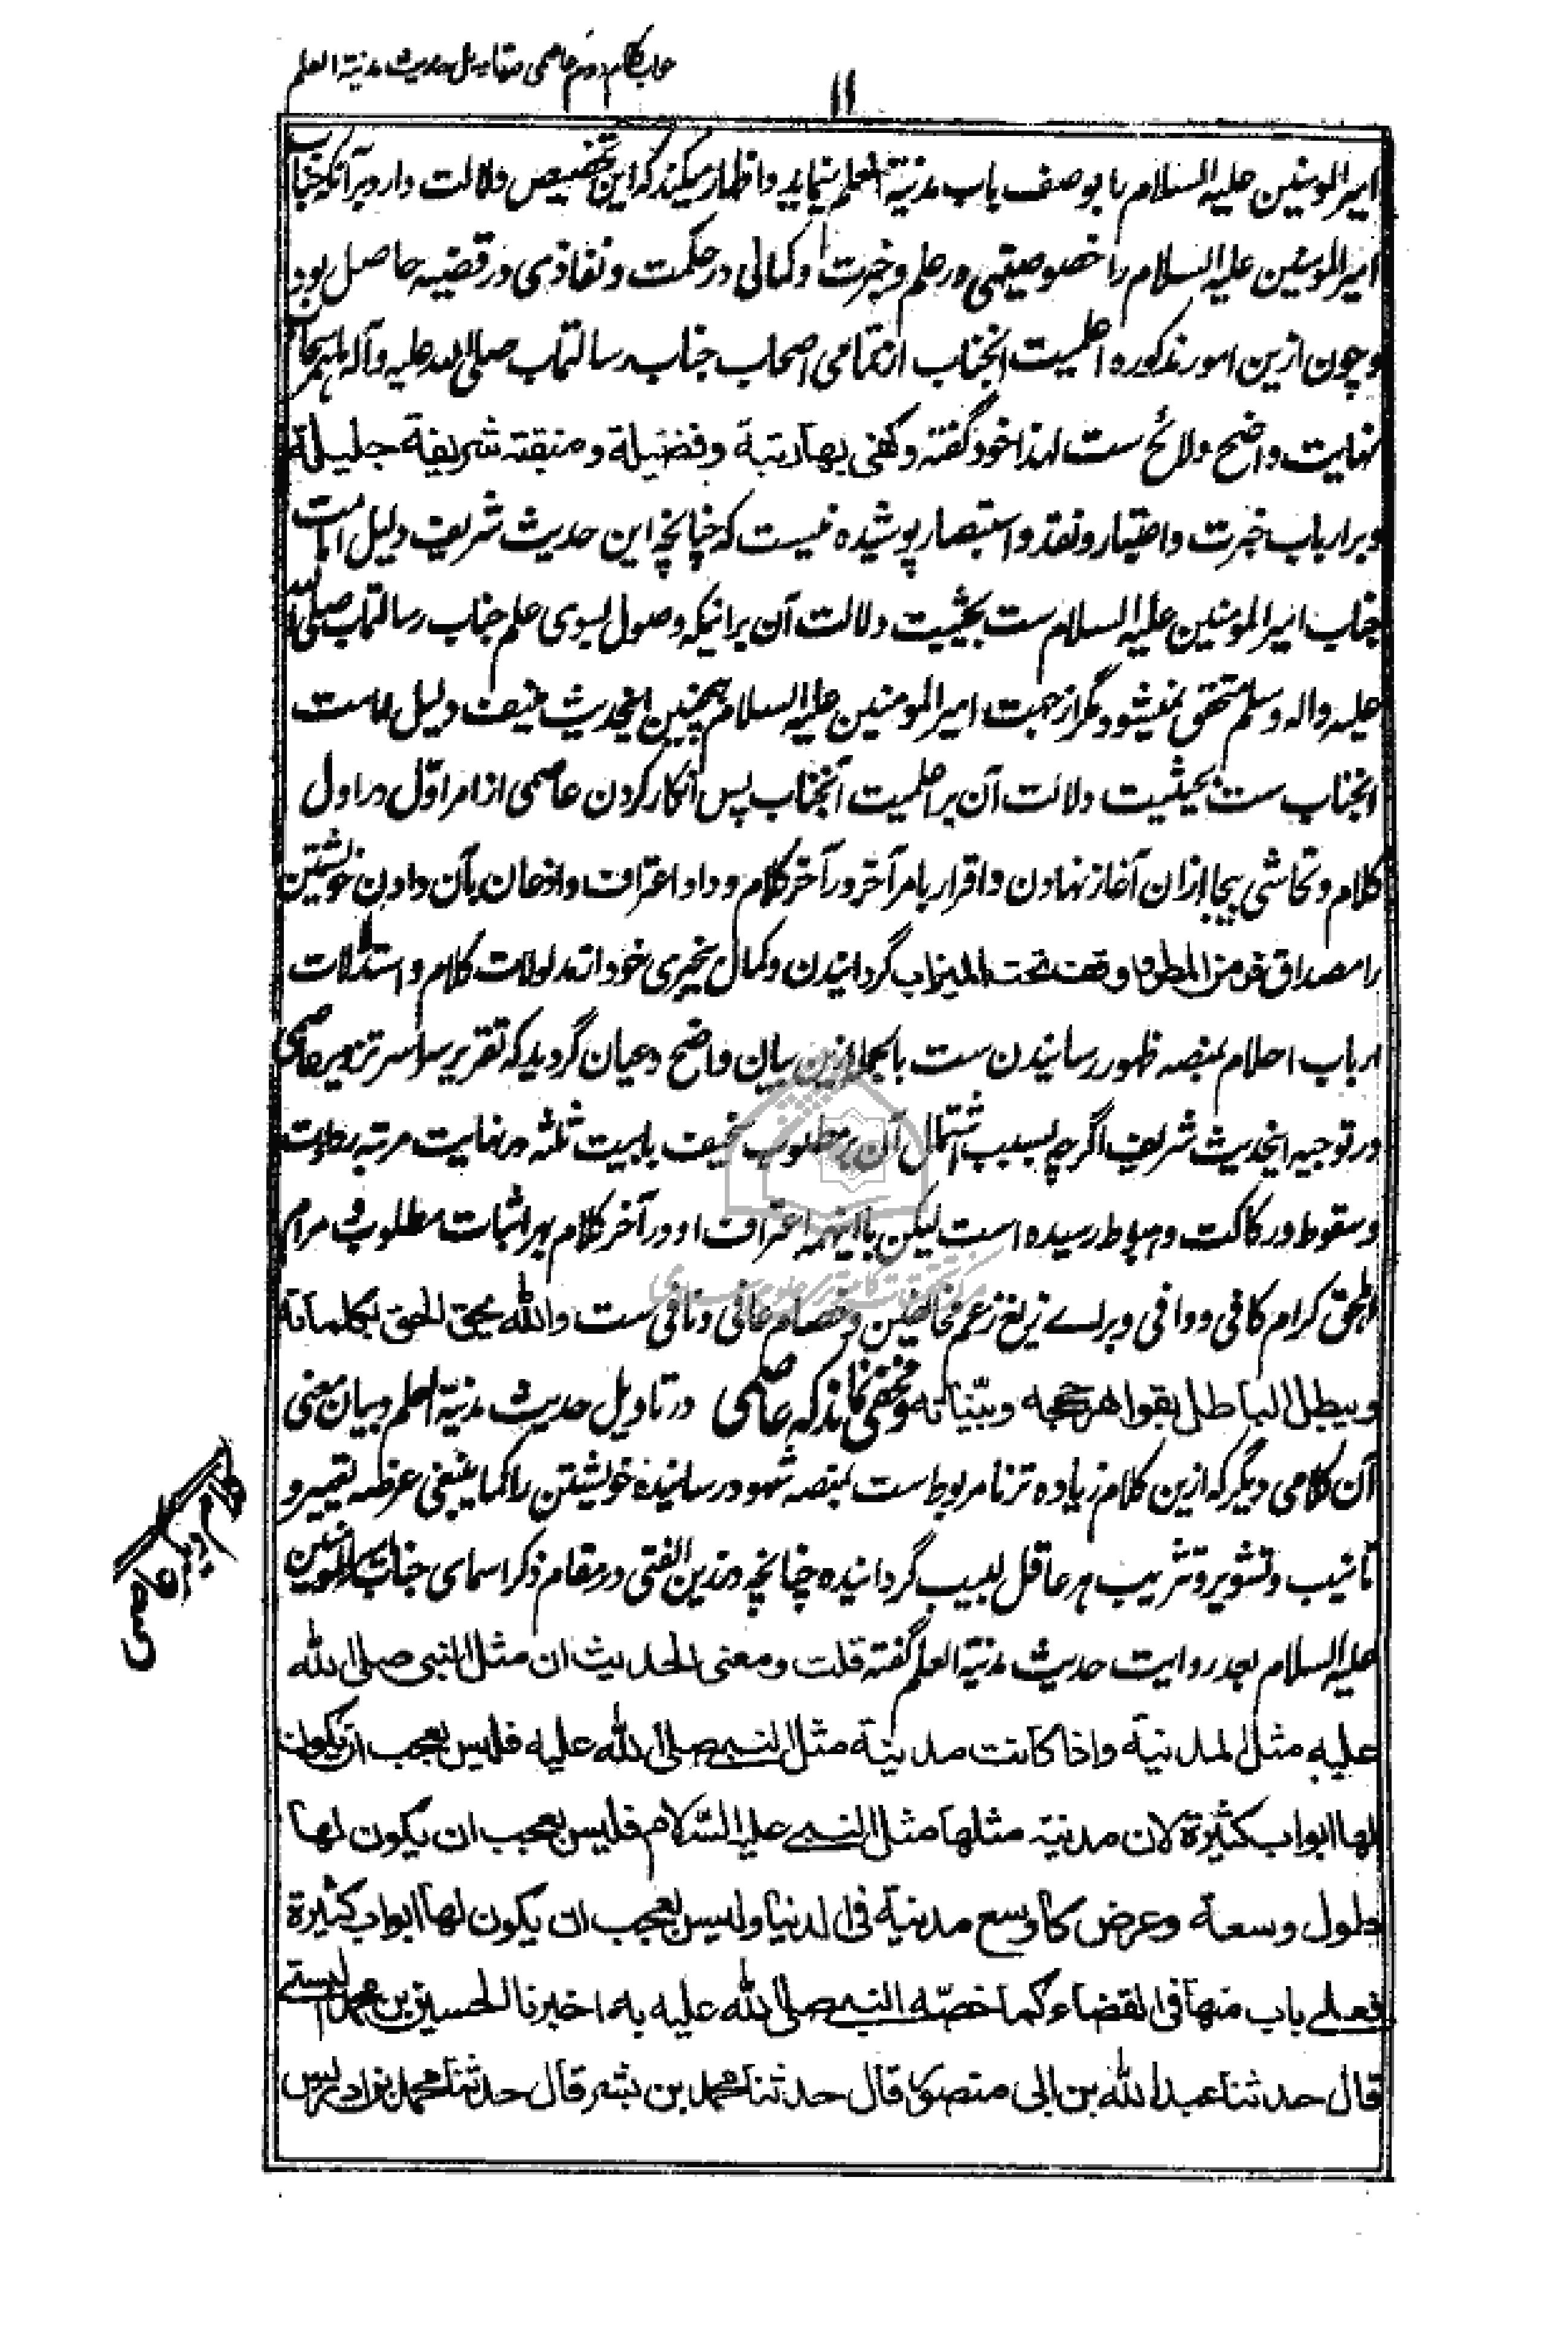 جواب کلام دوم عاصمی متعلق بتاویل حدیث مدینة العلم
۱۱
امیرالمومنین علیه السلام را بوصف باب مدینة العلم مینماید و اظهار میکند که این تخصیص دلالت دارد بر آنکه جناب
امیرالمومنین علیه السلام را خصوصیتی در علم و خبرت و کمالی در حکمت و نفاذی در قضیه حاصل بود
و چون ازین امور مذکوره اعلمیت آنجناب از تمامی اصحاب جناب رسالتماب صلی الله علیه و آله
نهایت واضح و لائح ست لهذا خود گفته و کفی بها رتبة و فضیلة و منقبته شریفة جلیلة
و بر ارباب خبرت و اختبار و نقد و استبصار پوشیده نیست که چنانچه این حدیث شریف دلیل امامت
جناب امیرالمومنین علیه السلام ست بحیثیت دلالت آن بر اینکه وصول بسوی علم جناب رسالتماب صلی الله
علیه واله وسلم متحقق نمیشود مگر از جهت امیرالمومنین علیه السلام همچنین اینحدیث منیف دلیل امامت
آنجناب ست بحیثیت دلالت آن بر اعلمیت آنجناب پس انکار کردن عاصمی از امر اول در اول
کلام و تحاشی بیجا ازان آغاز نهادن و اقرار بامر آخر در آخر کلام و داد اعتراف و اذعان بآن دادن خویشتن
را مصداق فر من المطر و وقف تحت المیزاب گردانیدن و کمال بیخبری خود از مدلولات کلام و استدلالات
ارباب احلام بمنصه ظهور رسانیدن ست بالجمله ازین بیان واضح و عیان گردید که تقریر سراسر تزویر عاصمی
در توجیه اینحدیث شریف اگرچه بسبب اشتمال آن بر مطلوب سخیف بابیت ثلثه در نهایت مرتبه رداءت
و سقوط و رکاکت و هبوط رسیده است لیکن با اینهمه اعتراف او در آخر کلام بهر اثبات مطلوب و مرام
اهل حق کرام کافی و وافی و برای زیغ زعم مخالفین و خصام عافی و نافی ست والله یحق الحق بکلماته
ویبطل الباطل بقواهر حججه وبیناته و مخفی نماند که عاصمی در تاویل حدیث مدینة العلم و بیان معنی
آن کلامی دیگر که ازین کلام زیاده تر نامربوط است بمنصه شهود رسانیده خویشتن را کما ینبغی عرضه تعییر و
تانیب و تشویر و تثریب هر عاقل لبیب گردانیده چنانچه در زین الفتی در مقام ذکر اسمای جناب امیرالمومنین
علیه السلام بعد روایت حدیث مدینة العلم گفته قلت ومعنی الحدیث ان مثل النبی صلی الله
علیه مثل المدینة واذا کانت مدینة مثل النبی صلی الله علیه فلیس بعجب ان یکون
لها ابواب کثیرة لان مدینة مثلها مثل النبی علیه السّلام فلیس بعجب ان یکون لها
طول وسعة وعرض کاوسع مدینة فی الدنیا ولیس بعجب ان یکون لها ابواب کثیرة
فعلی باب منها فی القضاء کما خصّه النبی صلی الله علیه به اخبرنا الحسین بن محمد البستی
قال حدثنا عبدالله بن ابی منصور قال حدثنا محمد بن بشر قال حدثنا محمد بن ادریس
کلام دیگر عاصمی